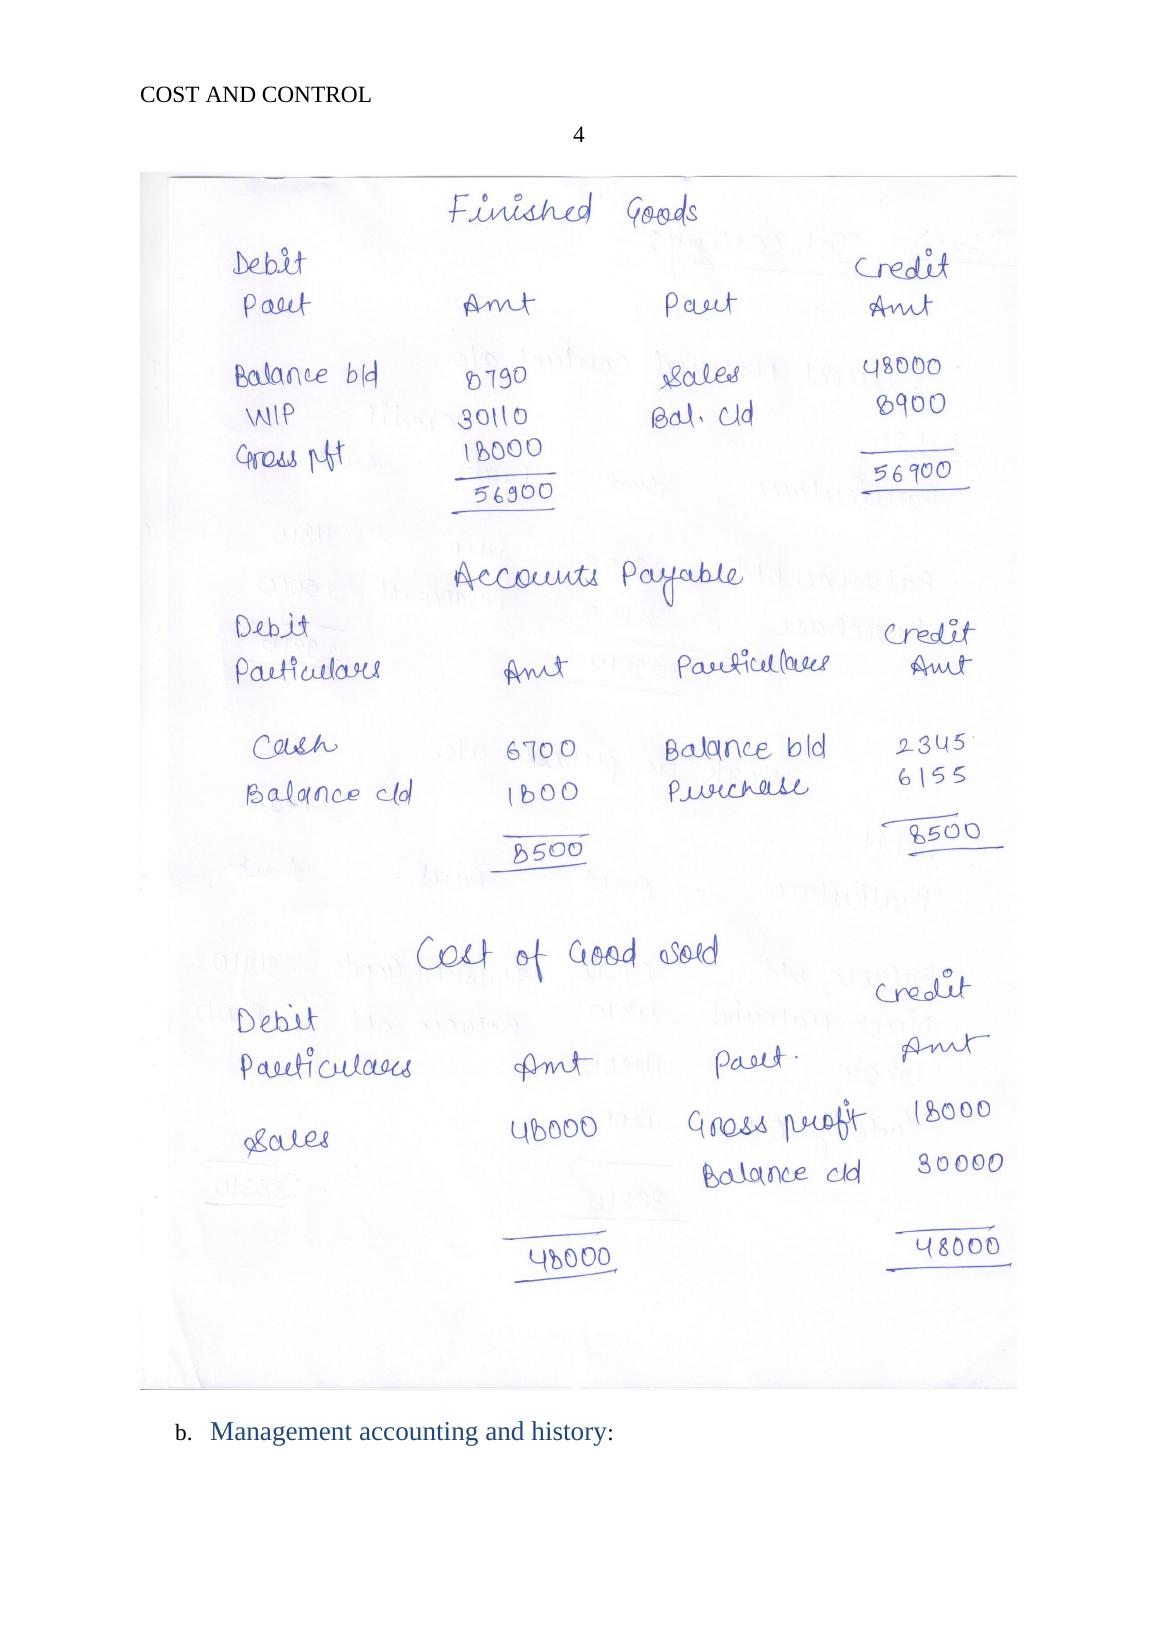 COST AND CONTROL
4
Finished Goods
Debit Credit
Part Amt Part Amt
Balance b/d 8790 Sales 48000
WIP 30110 Bal. c/d 8900
Gross pft 18000
56900 56900
Accounts Payable
Debit Credit
Particulars Amt Particulars Amt
Cash 6700 Balance b/d 2345
Balance c/d 1800 Purchase 6155
8500 8500
Cost of Good Sold
Debit Credit
Particulars Amt Part. Amt
Sales 48000 Gross profit 18000
Balance c/d 30000
48000 48000
b. Management accounting and history: